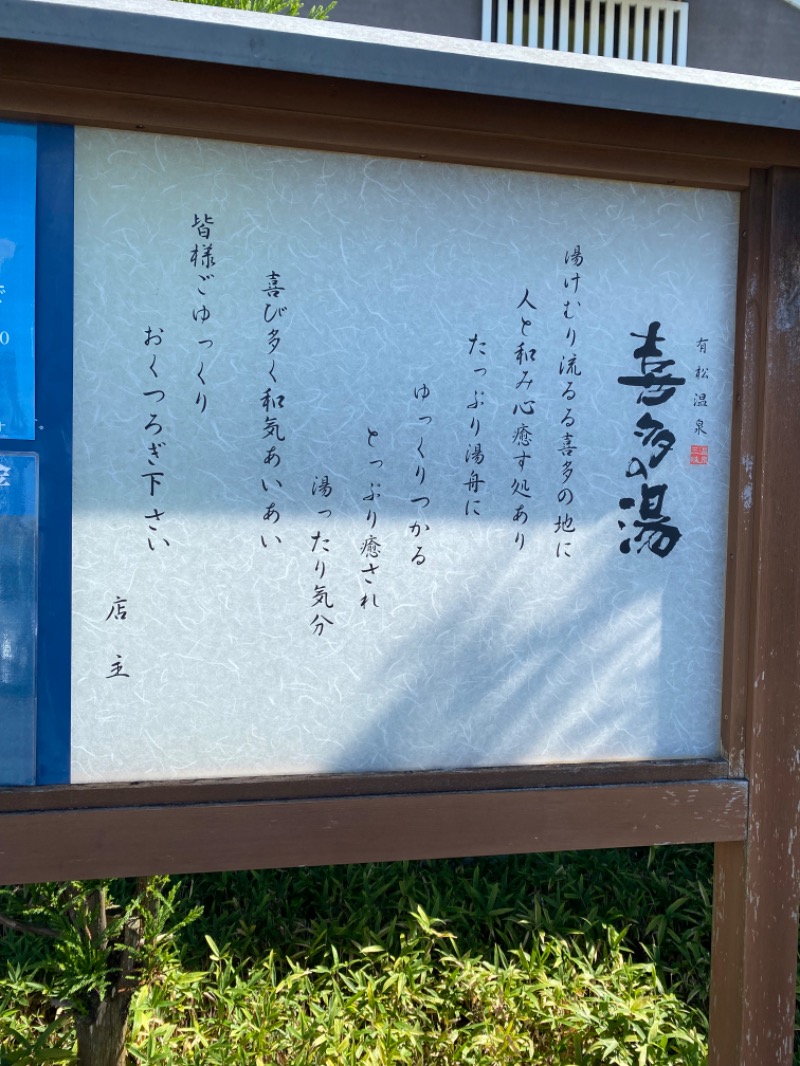 有松温泉
喜多の湯
湯けむり流るる喜多の地に
人と和み心癒す処あり
たっぷり湯舟に
ゆっくりつかる
とっぷり癒され
湯ったり気分
喜び多く和気あいあい
皆様ごゆっくり
おくつろぎ下さい
店主